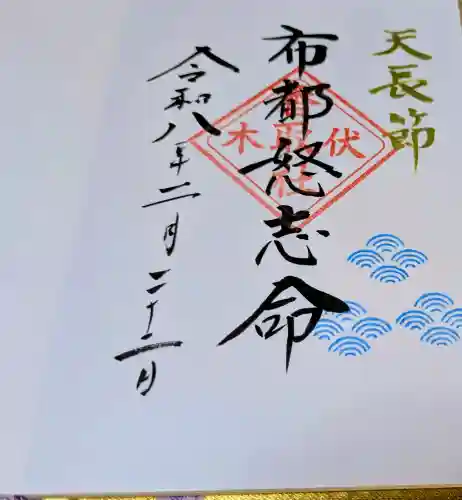 天長節
布都怒志命
令和八年二月二十二日
伏木